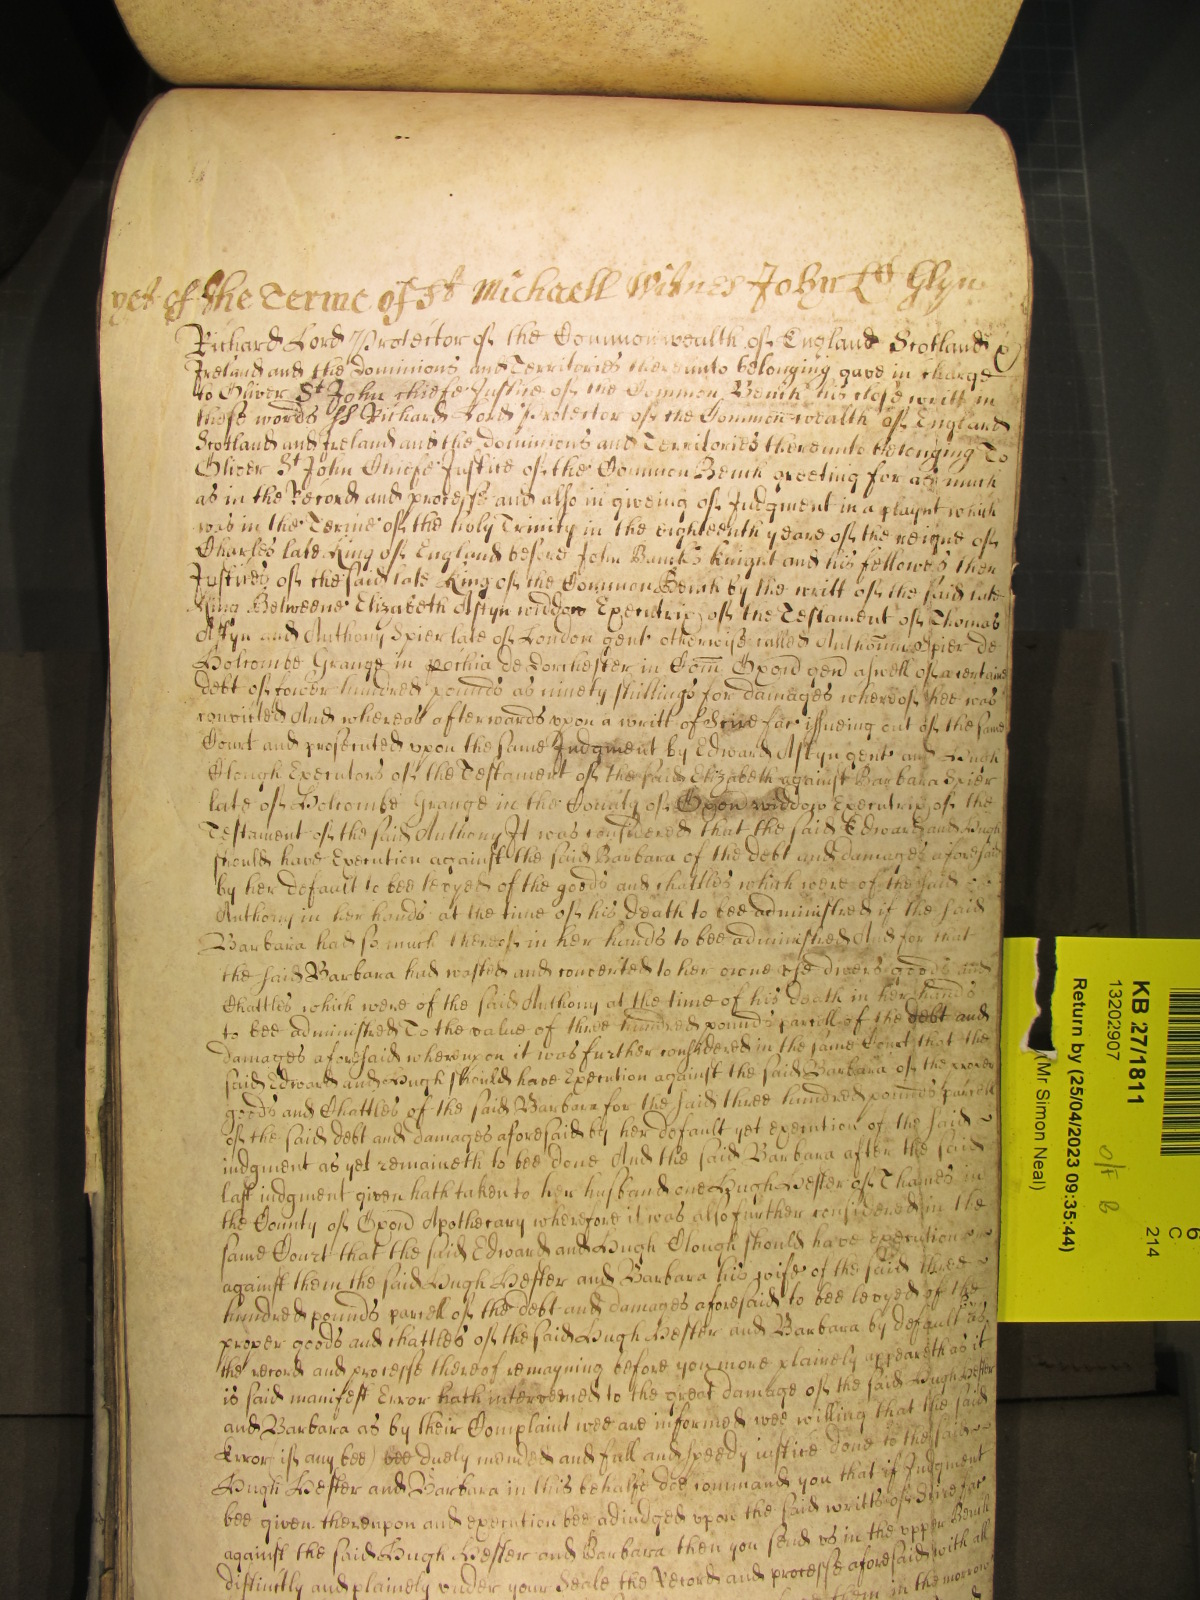 yet of the Terme of St Michaell Witnes John Glyn
Richard Lord Protector of the Common wealth of England Scotland
Ireland and the Dominions and Territories thereunto belonging gave in charge
to Oliver St John chiefe Justice of the Common Bench his close writt in
these words ss Richard Lord Protector of the Common wealth of England
Scotland and Ireland and the Dominions and Territories thereunto belonging To
Oliver St John Chiefe Justice of the Common Bench greeting for as much
as in the Record and processe and also in giveing of Judgment in a playnt which
was in the Terme of the holy Trinity in the eighteenth yeare of the reigne of
Charles late King of England before John Banks Knight and his fellowes then
Justices of the said late King of the Common Bench by the writt of the said late
King Betweene Elizabeth Astyn widdow Executrix of the Testament of Thomas
Astyn and Anthony Spier late of London gent otherwise called Anthonium Spier de
Holcombe Grange in pochia de Dorchester in Com Oxon gen aswell of a certaine
debt of fower hundred pounds as ninety shillings for damages whereof hee was
convicted And whereas afterwards upon a writt of Scire fac issueing out of the same
Court and prosecuted upon the same Judgment by Edward Astyn gent and Hugh
Clough Executors of the Testament of the said Elizabeth against Barbara Spier
late of Holcombe Grange in the County of Oxon widdow Executrix of the
Testament of the said Anthony It was considered that the said Edward and Hugh
should have Execution against the said Barbara of the debt and damages aforesaid
by her default to bee levyed of the goods and chattles which were of the said
Anthony in her hands at the time of his death to bee administred if the said
Barbara had so much thereof in her hands to bee administred And for that
the said Barbara had wasted and converted to her owne use divers goods and
Chattles which were of the said Anthony at the time of his death in her hands
to bee administred To the value of three hundred pounds parcell of the debt and
damages aforesaid whereupon it was further considered in the same Court that the
said Edward and Hugh should have Execution against the said Barbara of the proper
goods and Chattles of the said Barbara for the said three hundred pounds parcell
of the said debt and damages aforesaid by her default yet execution of the said
iudgment as yet remaineth to bee done And the said Barbara after the said
last iudgment given hath taken to her husband one Hugh Hester of Thames in
the County of Oxon Apothecary wherefore it was also further considered in the
same Court that the said Edward and Hugh Clough should have execution
against them the said Hugh Hester and Barbara his wife of the said three
hundred pounds parcell of the debt and damages aforesaid to bee levyed of the
proper goods and chattles of the said Hugh Hester and Barbara by default as
the record and processe thereof remayning before you more plainely appeareth as it
is said manifest Error hath intervened to the great damage of the said Hugh Hester
and Barbara as by their Complaint wee are informed wee willing that the said
Error (if any bee) bee duely mended and full and speedy iustice done to the said
Hugh Hester and Barbara in this behalfe doe command you that if Judgment
bee given thereupon and execution bee adiudged upon the said writts of Scire fac
against the said Hugh Hester and Barbara then you send us in the upper Bench
distinctly and plainely under your Seale the Record and processe aforesaid with all
them in the morrow
KB 27/1811
13202907
Return by (25/04/2023 09:35:44)
(Mr Simon Neal)
6
C
214